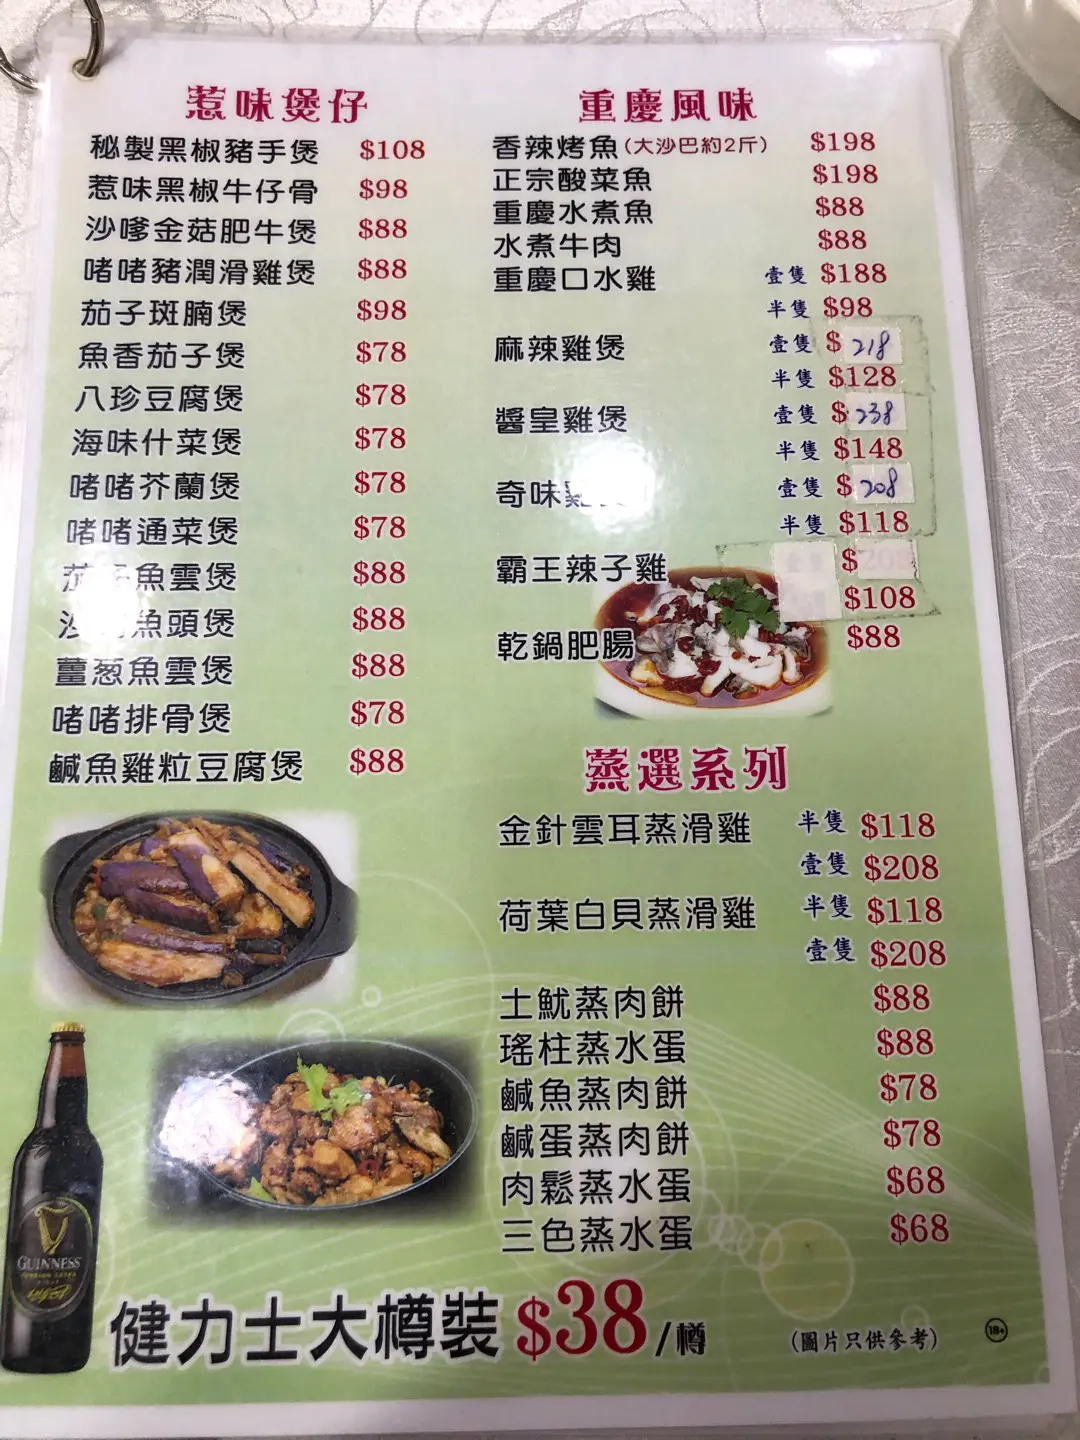 惹味煲仔
秘製黑椒豬手煲 $108
惹味黑椒牛仔骨 $98
沙嗲金菇肥牛煲 $88
啫啫豬潤滑雞煲 $88
茄子斑腩煲 $98
魚香茄子煲 $78
八珍豆腐煲 $78
海味什菜煲 $78
啫啫芥蘭煲 $78
啫啫通菜煲 $78
魚雲煲 $88
魚頭煲 $88
薑葱魚雲煲 $88
啫啫排骨煲 $78
鹹魚雞粒豆腐煲 $88
重慶風味
香辣烤魚(大沙巴約2斤) $198
正宗酸菜魚 $198
重慶水煮魚 $88
水煮牛肉 $88
重慶口水雞 壹隻 $188
半隻 $98
麻辣雞煲 壹隻 $218
半隻 $128
醬皇雞煲 壹隻 $238
半隻 $148
奇味雞 壹隻 $208
半隻 $118
霸王辣子雞 $208
$108
乾鍋肥腸 $88
蒸選系列
金針雲耳蒸滑雞 半隻 $118
壹隻 $208
荷葉白貝蒸滑雞 半隻 $118
壹隻 $208
土魷蒸肉餅 $88
瑤柱蒸水蛋 $88
鹹魚蒸肉餅 $78
鹹蛋蒸肉餅 $78
肉鬆蒸水蛋 $68
三色蒸水蛋 $68
GUINNESS
健力士大樽裝 $38/樽
(圖片只供參考)
18+